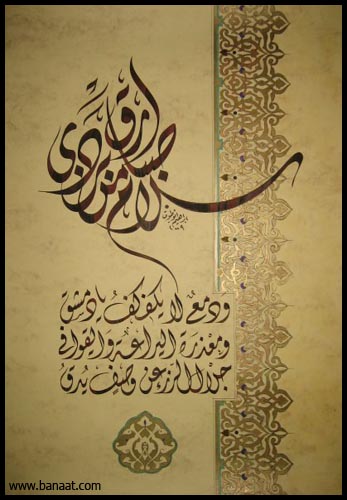 سلام من صبا بردى أرق
ودمع لا يكفكف يا دمشق
ومعذرة اليراعة والقوافي
جلال الرزء عن وصف يدق
www.banaat.com